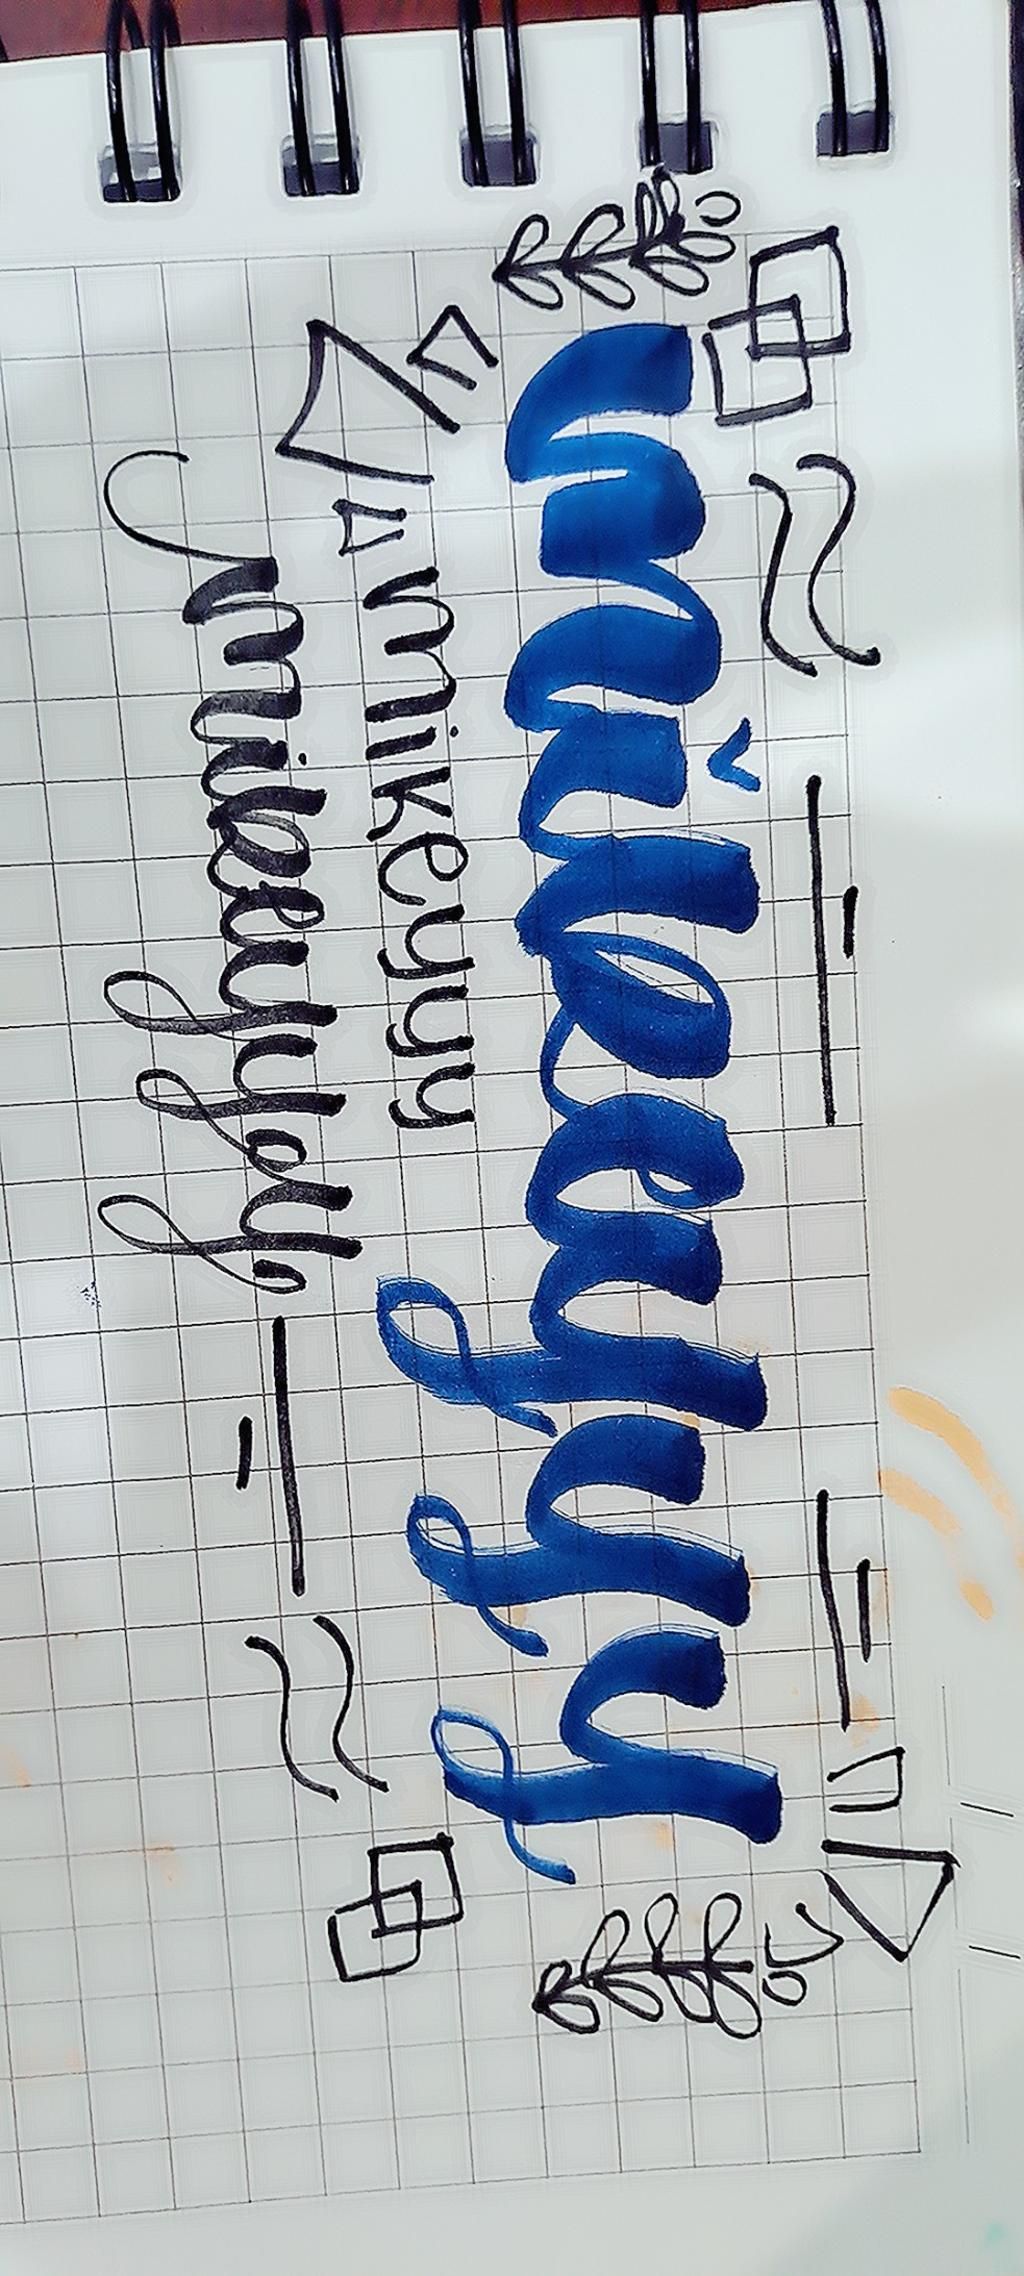 mikeyyy
mikeyyy
mikeyyy